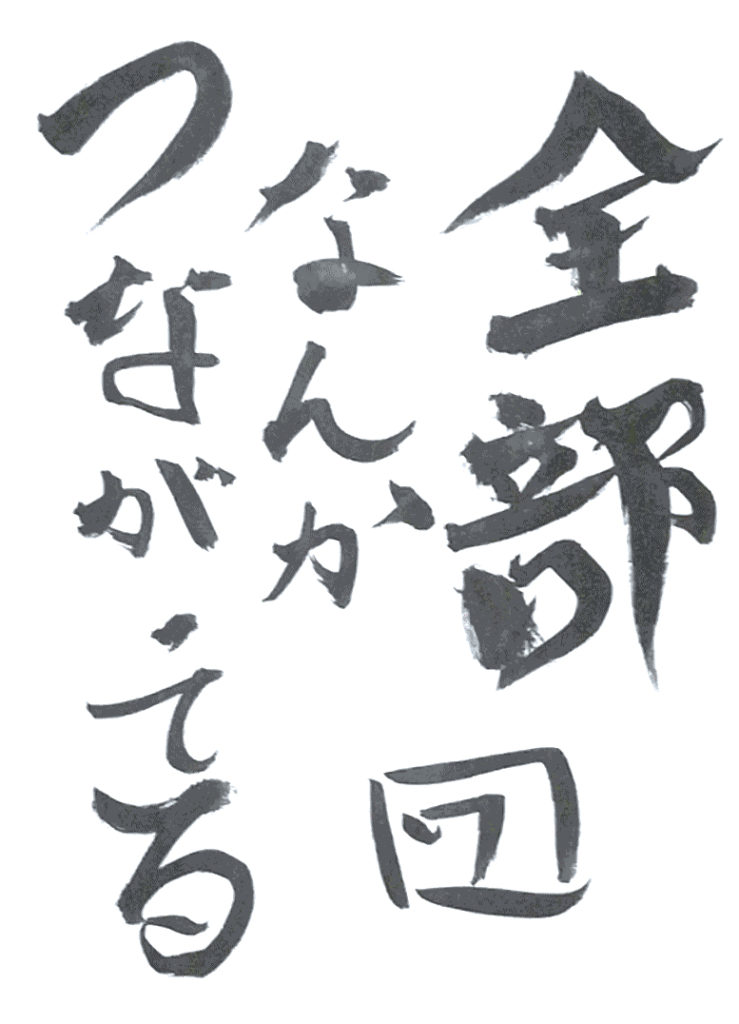 全部回
なんか
つながってる